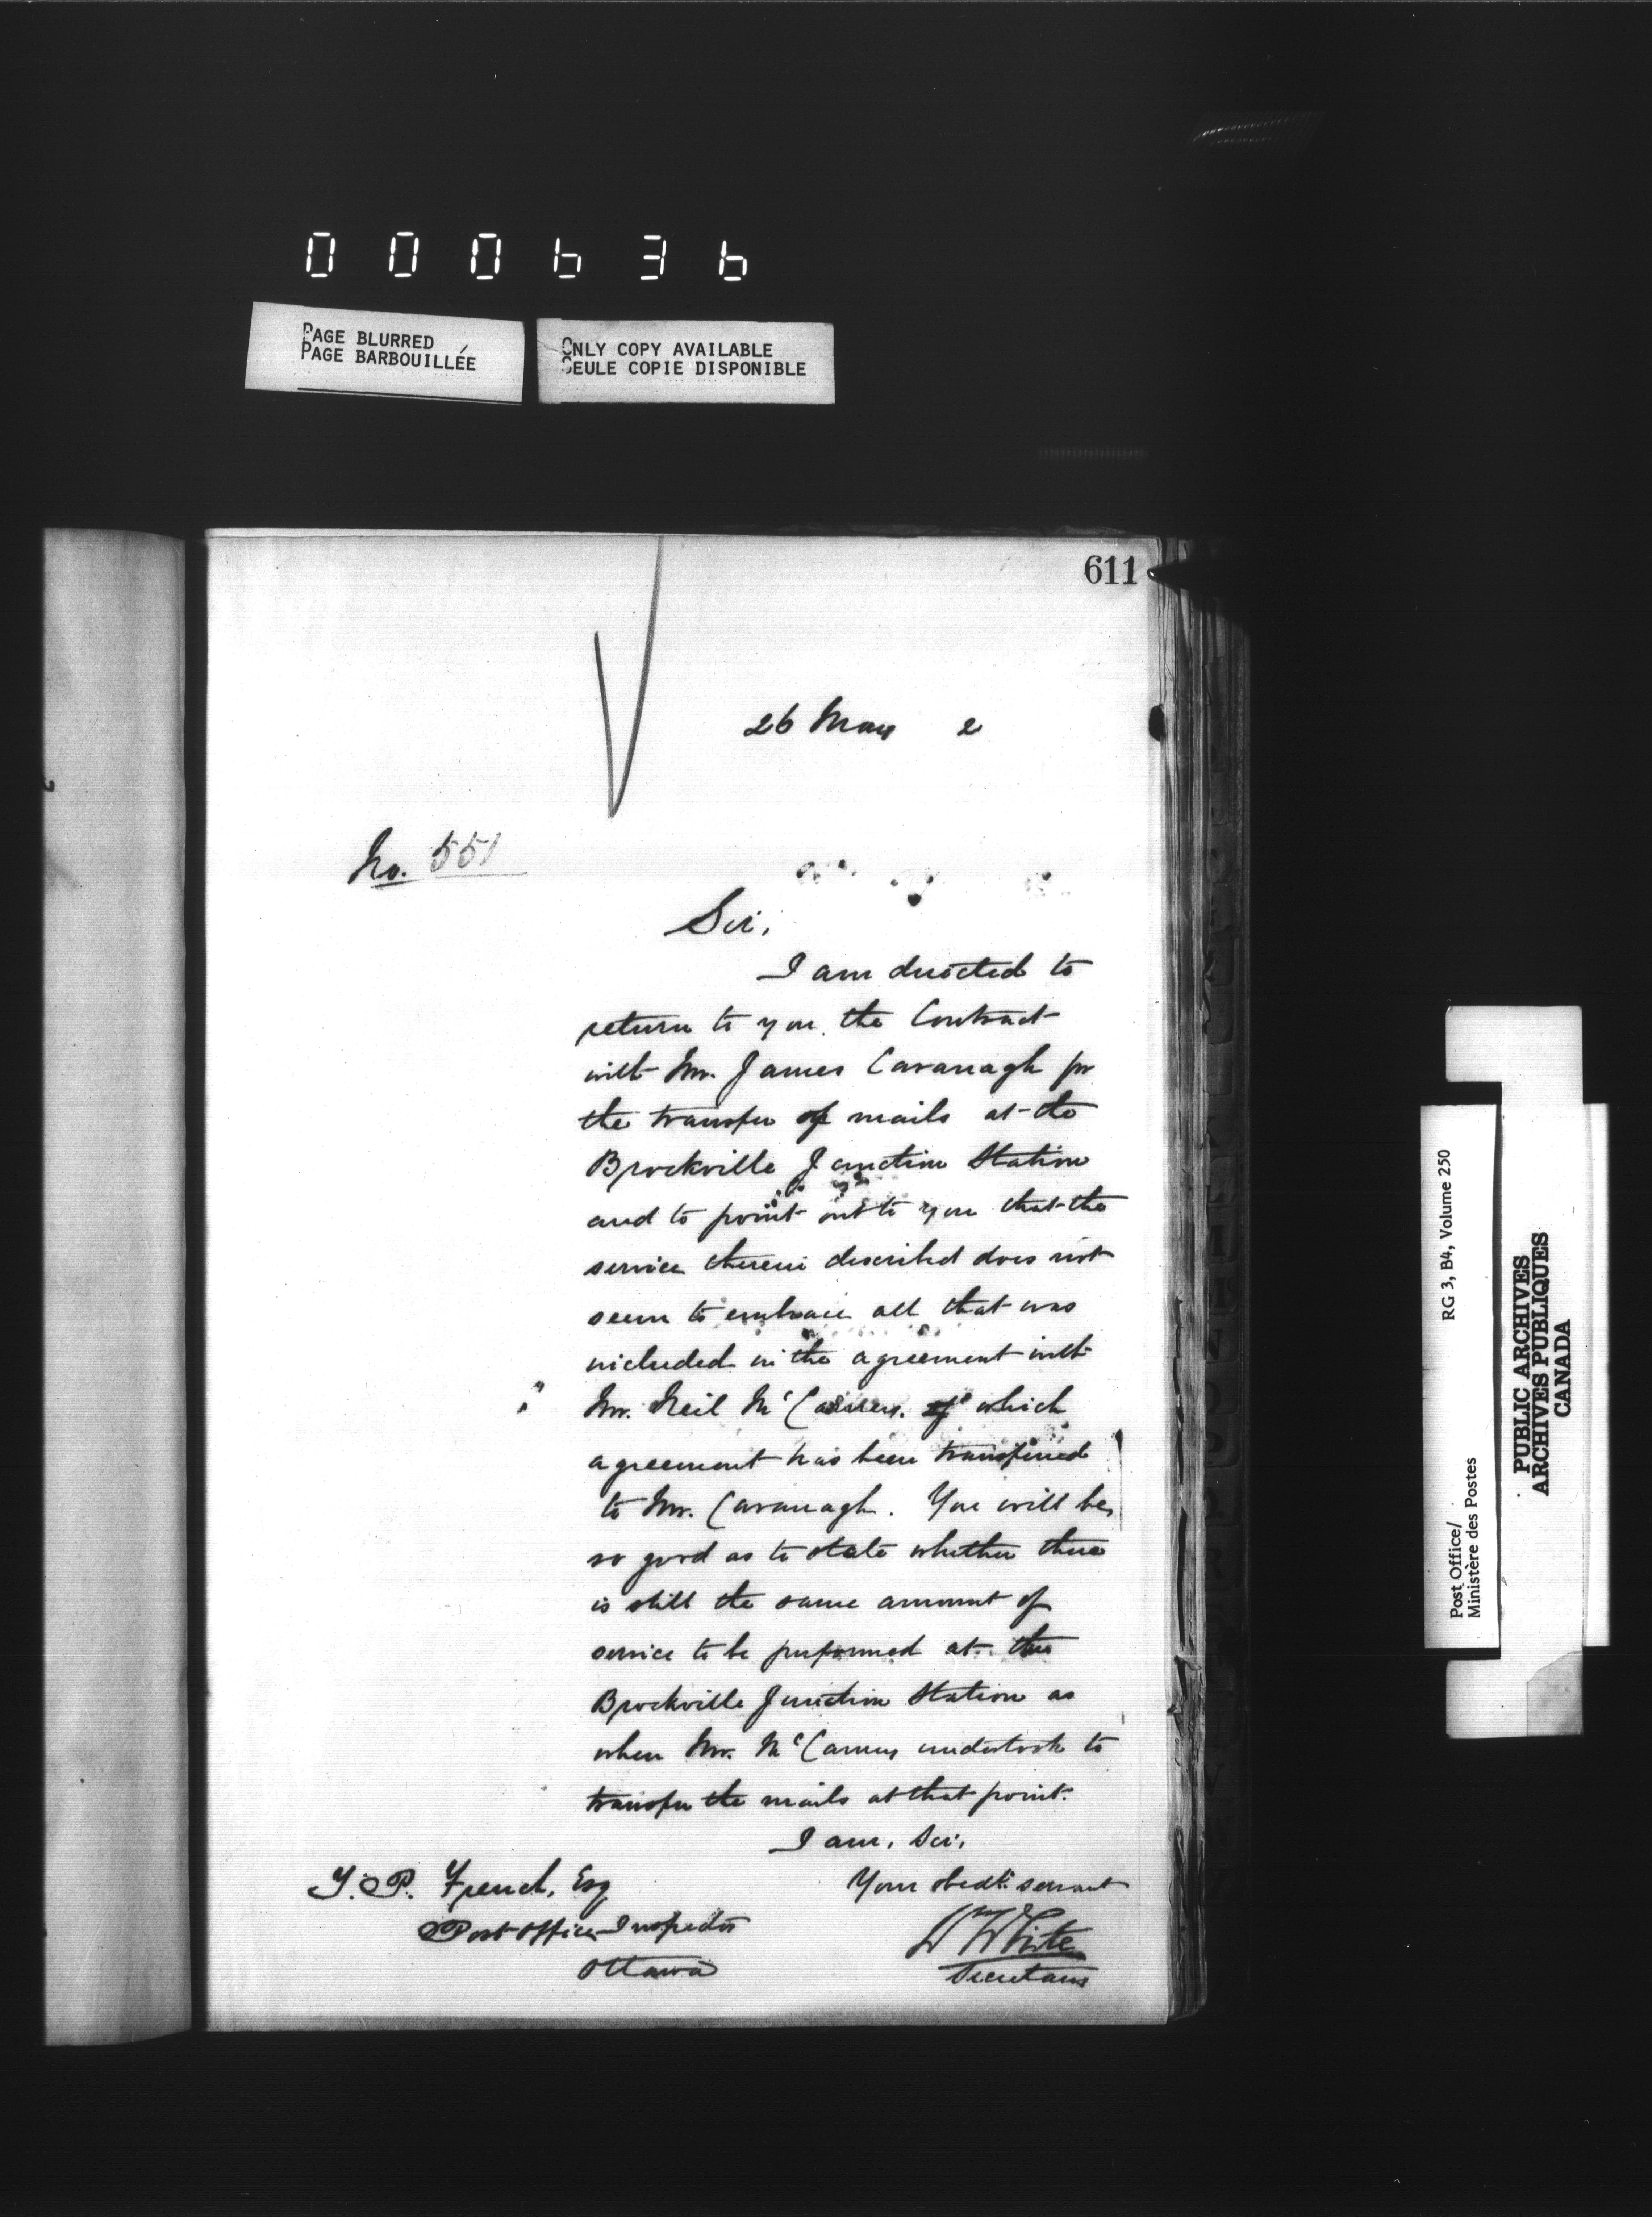 000636
PAGE BLURRED
PAGE BARBOUILLÉE
ONLY COPY AVAILABLE
SEULE COPIE DISPONIBLE
611
26 May 2
No. 551
Sir,
I am directed to
return to you the Contract
with Mr. James Cavanagh for
the transfer of mails at the
Brockville Junction Station
and to point out to you that the
service therein described does not
seem to embrace all that was
included in the agreement with
Mr. Neil McCarney. which
agreement has been transferred
to Mr. Cavanagh. You will be
so good as to state whether there
is still the same amount of
service to be performed at the
Brockville Junction Station as
when Mr. McCarney undertook to
transfer the mails at that point.
I am, Sir,
Your obedt. servant
Wm White
Secretary
T. P. French, Esq
Post Office Inspector
Ottawa
RG 3, B4, Volume 250
Post Office/
Ministère des Postes
PUBLIC ARCHIVES
ARCHIVES PUBLIQUES
CANADA